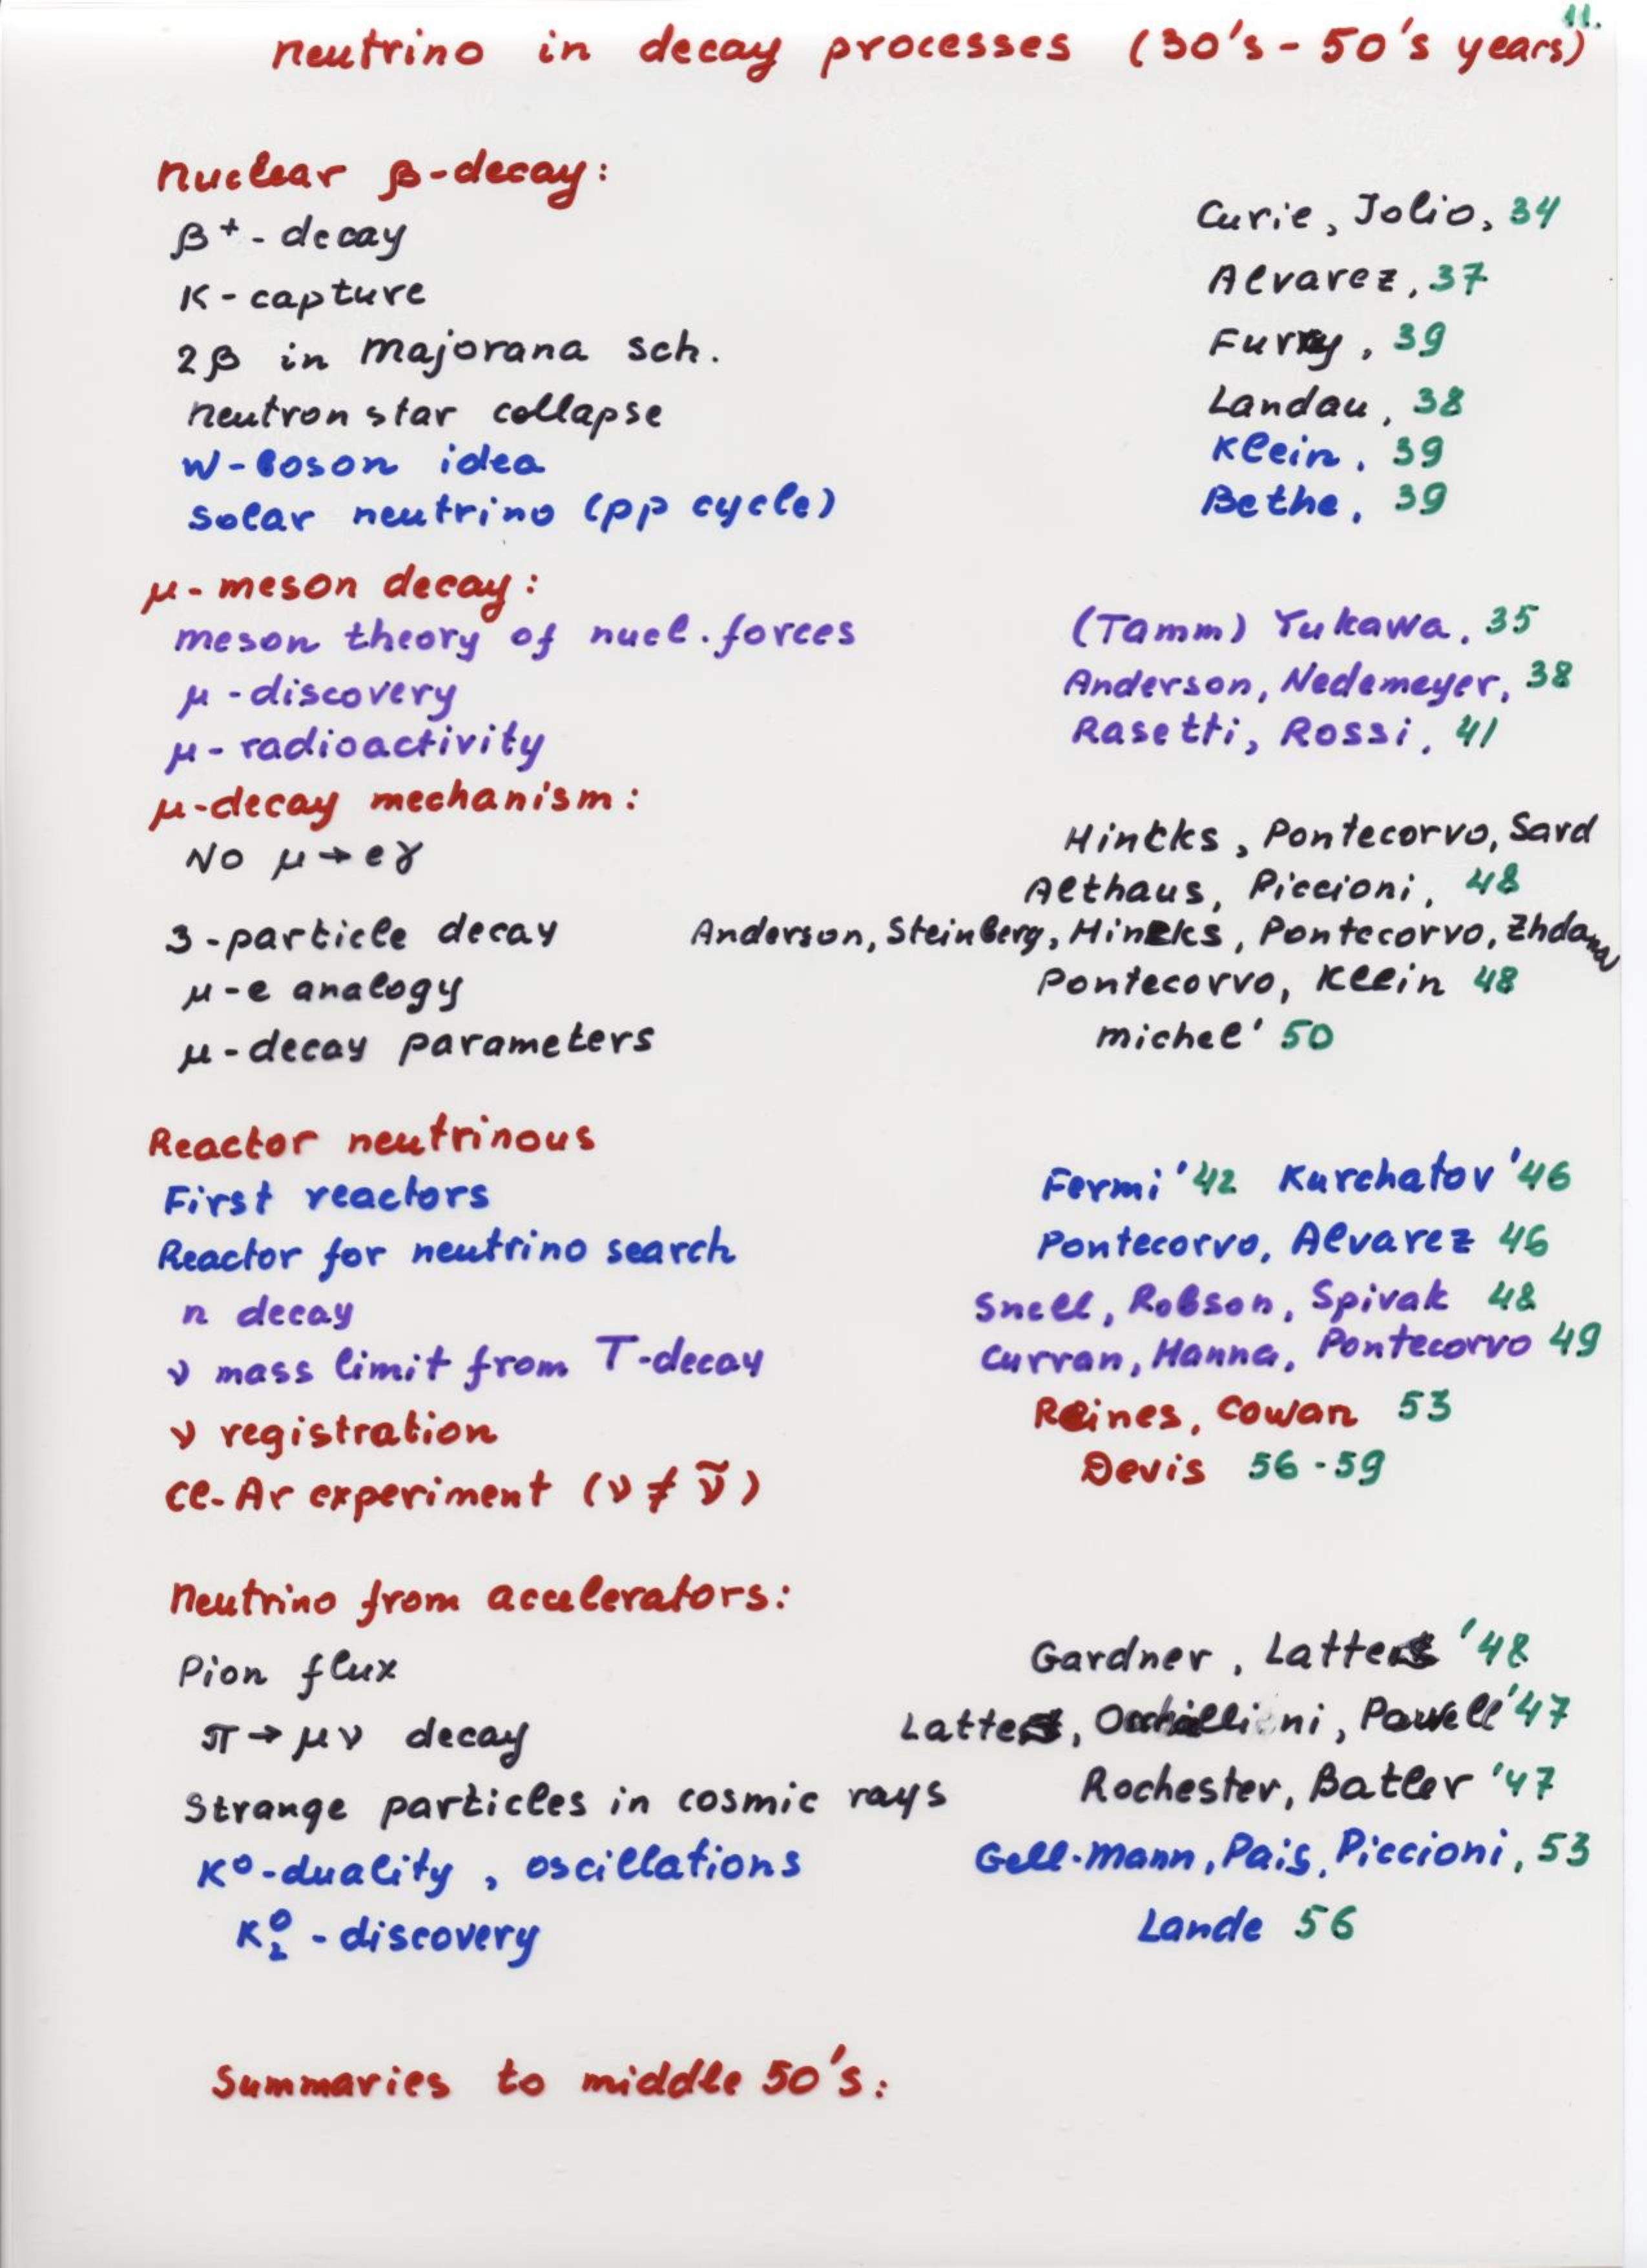 11.
neutrino in decay processes (30's - 50's years)
Nuclear β-decay:
β⁺ - decay Curie, Jolio, 34
K - capture Alvarez, 37
2β in Majorana sch. Furry, 39
neutron star collapse Landau, 38
W-boson idea Klein, 39
Solar neutrino (pp cycle) Bethe, 39
μ - meson decay:
meson theory of nucl. forces (Tamm) Yukawa, 35
μ - discovery Anderson, Nedemeyer, 38
μ - radioactivity Rasetti, Rossi, 41
μ-decay mechanism:
No μ → eγ Hincks, Pontecorvo, Sard
Althaus, Piccioni, 48
3-particle decay Anderson, Steinberg, Hincks, Pontecorvo, Zhdanov
μ-e analogy Pontecorvo, Klein 48
μ-decay parameters Michel' 50
Reactor neutrinous
First reactors Fermi '42 Kurchatov '46
Reactor for neutrino search Pontecorvo, Alvarez 46
n decay Snell, Robson, Spivak 48
ν mass limit from T-decay Curran, Hanna, Pontecorvo 49
ν registration Reines, Cowan 53
Cl-Ar experiment (ν ≠ ν̃) Devis 56-59
Neutrino from accelerators:
Pion flux Gardner, Lattes '48
π → μν decay Lattes, Powell '47
Strange particles in cosmic rays Rochester, Batler '47
K⁰-duality, oscillations Gell-Mann, Pais, Piccioni, 53
K₂⁰ - discovery Lande 56
Summaries to middle 50's: